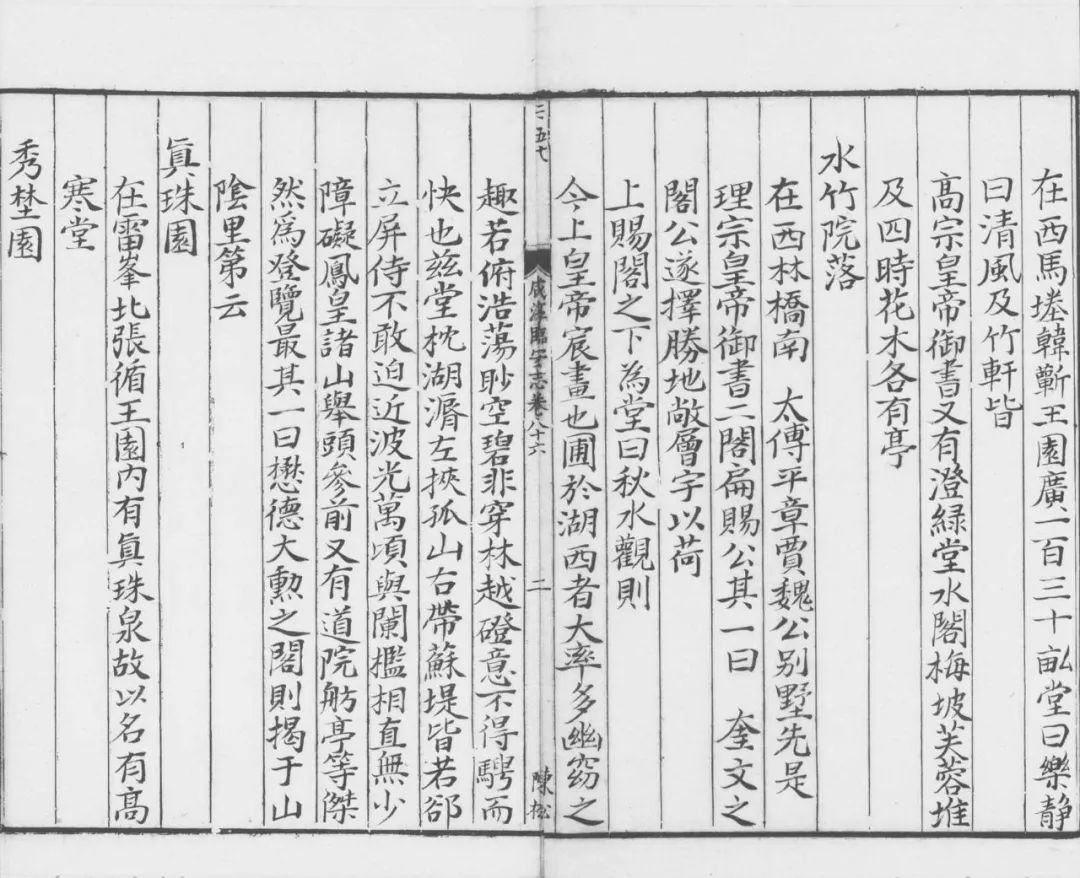 在西馬塍韓蘄王園廣一百三十畝堂曰樂靜
曰清風及竹軒皆
高宗皇帝御書又有澄綠堂水閣梅坡芙蓉堆
及四時花木各有亭
水竹院落
在西林橋南 太傅平章賈魏公别墅先是
理宗皇帝御書二閣扁賜公其一曰 奎文之
閣公遂擇勝地敞層宇以荷
上賜閣之下為堂曰秋水觀則
今上皇帝宸畫也圃於湖西者大率多幽窈之
咸淳臨安志卷八十六 二 陳松
趣若俯浩蕩眇空碧非穿林越磴意不得騁而
快也兹堂枕湖漘左挾孤山右帶蘇堤皆若郤
立屏侍不敢迫近波光萬頃與闌檻相直無少
障礙鳳皇諸山舉頭參前又有道院舫亭等傑
然為登覽最其一曰懋德大勲之閣則揭于山
陰里第云
眞珠園
在雷峯北張循王園内有眞珠泉故以名有高
寒堂
秀埜園